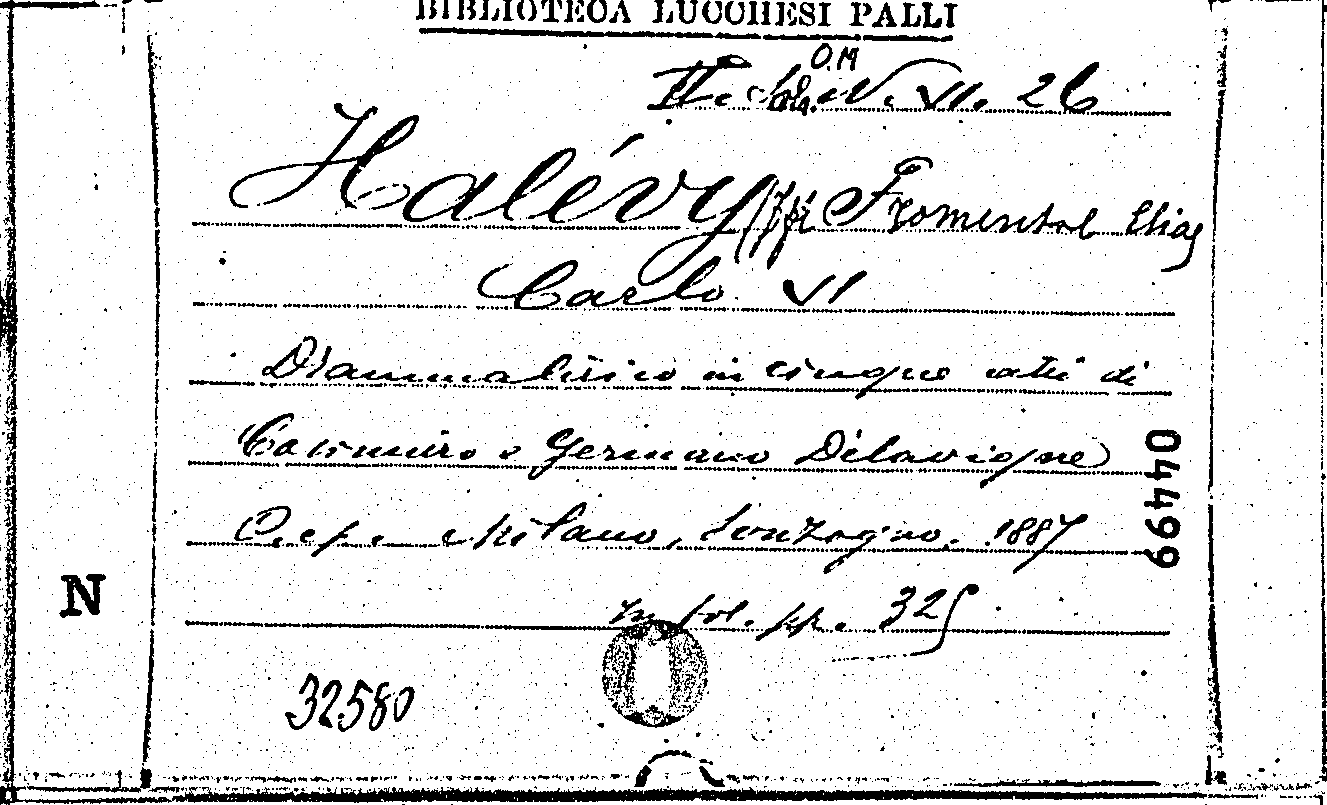 BIBLIOTECA LUCCHESI PALLI
O.M
II. N. VI. 26
Halévy Fromental Elias
Carlo VI
Dramma lirico in cinque atti di
Casimiro e Germano Delavigne
C. e p. Milano, Sonzogno. 1887
in fol. pp. 325
04499
N
32580